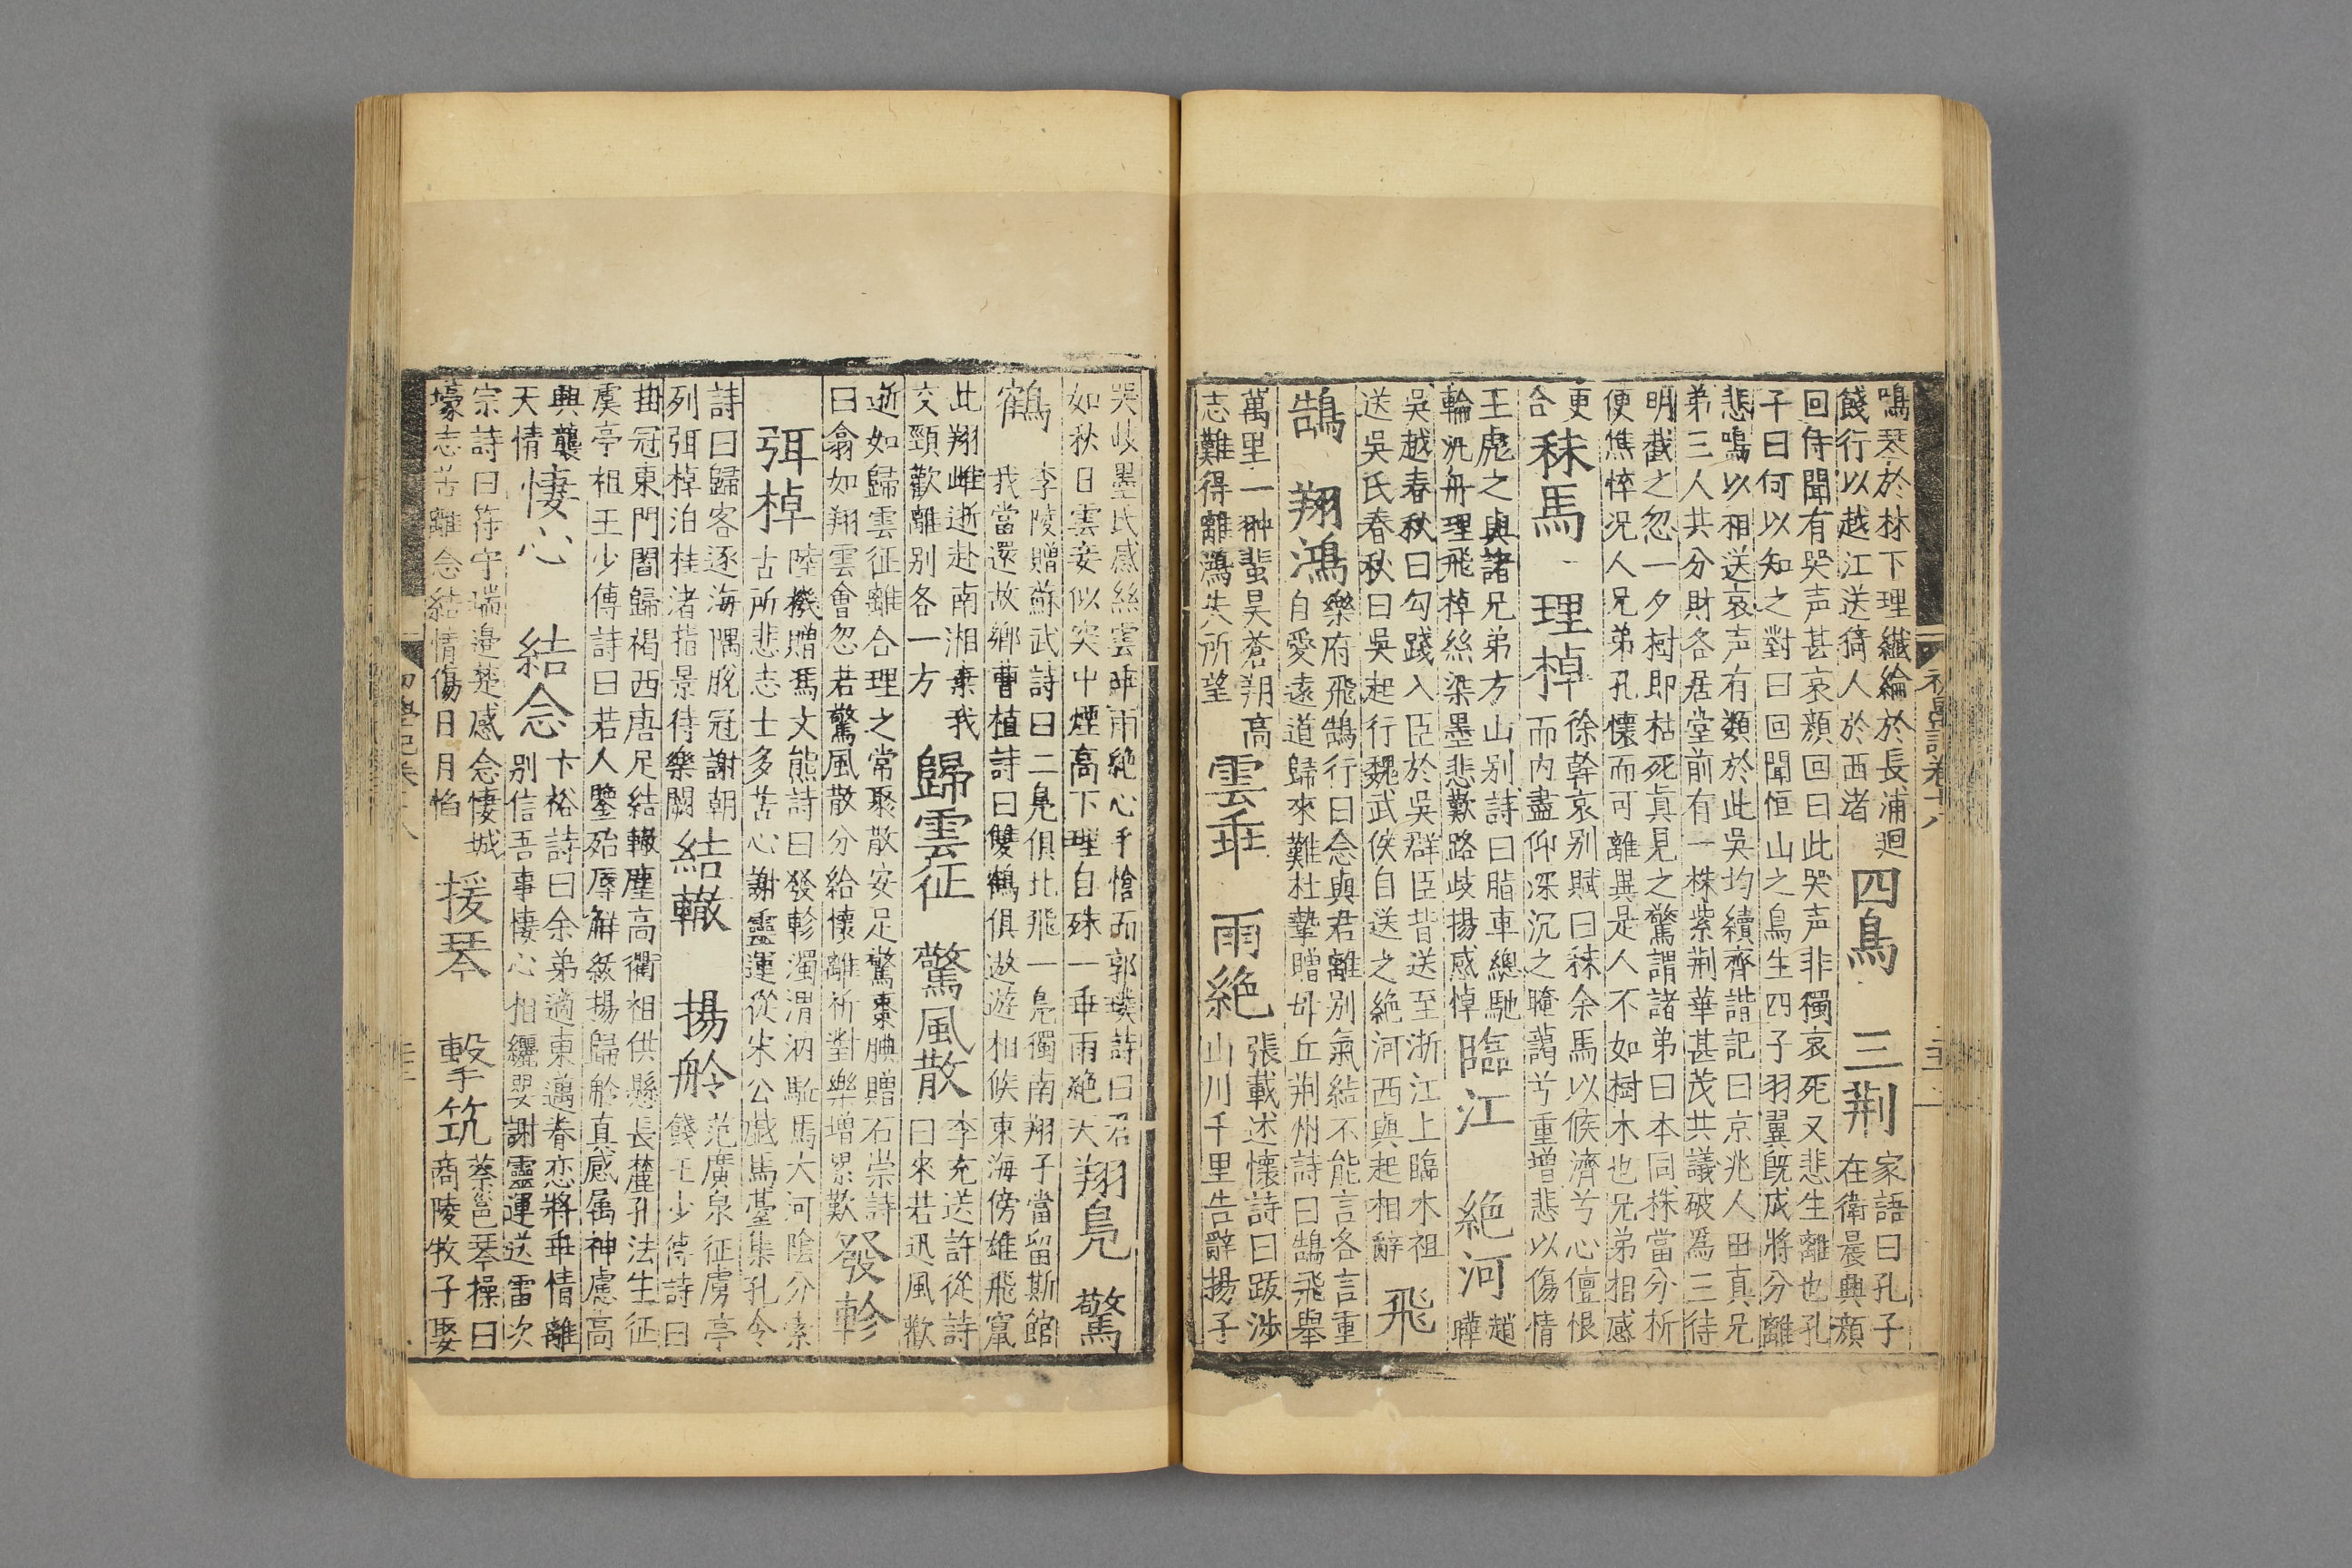 鳴琴於林下理纖綸於長浦迴
餞行以越江送猗人於西渚
四鳥　三荆
家語曰孔子
在衛晨興顔
回侍聞有哭声甚哀顔回曰此哭声非獨哀死又悲生離也孔
子曰何以知之對曰回聞恒山之鳥生四子羽翼既成將分離
悲鳴以相送哀声有類於此吳均續齊諧記曰京兆人田真兄
弟三人共分財各居堂前有一株紫荆華甚茂共議破爲三待
明截之忽一夕樹即枯死真見之驚謂諸弟曰本同株當分析
便憔悴况人兄弟孔懷而可離異是人不如樹木也兄弟相感
更
合
秣馬　理棹
徐幹哀别賦曰秣余馬以候濟兮心儃恨
而内盡仰深沉之晻藹兮重增悲以傷情
王彪之與諸兄弟方山别詩曰脂車總馳
輪汎舟理飛棹絲染墨悲歎路歧揚感悼
臨江　絶河
趙
曄
吳越春秋曰勾踐入臣於吳群臣皆送至浙江上臨水祖
送吳氏春秋曰吳起行魏武侯自送之絶河西與起相辭
飛
鵠　翔鴻
樂府飛鵠行曰念與君離别氣結不能言各言重
自愛遠道歸來難杜摯贈毌丘荆州詩曰鵠飛舉
萬里一翀蜚昊蒼翔高
志難得離鴻失所望
雲乖　雨絶
張載述懷詩曰跋涉
山川千里告辭揚子
哭歧墨氏感絲雲乖雨絶心乎愴而郭璞詩曰君
如秋日雲妾似突中煙高下理自殊一乖雨絶天
翔鳧　驚
鶴
李陵贈蘇武詩曰二鳧俱北飛一鳧獨南翔子當留斯館
我當還故鄉曹植詩曰雙鶴俱遨遊相候東海傍雄飛竄
此翔雌逝赴南湘棄我
交頸歡離别各一方
歸雲征　驚風散
李充送許從詩
曰來若迅風歡
逝如歸雲征離合理之常聚散安足驚棗腆贈石崇詩
曰翕如翔雲會忽若驚風散分給懷離析對樂增累歎
發軫
弭棹
陸機贈馮文熊詩曰發軫濁渭汭馳馬大河陰分索
古所悲志士多苦心謝靈運從宋公戲馬臺集孔令
詩曰歸客逐海隅脱冠謝朝
列弭棹泊桂渚指景待樂闋
結轍　揚舲
范廣泉征虜亭
餞王少傅詩曰
掛冠東門闇歸褐西唐足結轍塵高衢祖供懸長麓孔法生征
虞亭祖王少傅詩曰若人鑒殆辱解紱揚歸舲真感属神慮高
興襲
天情
悽心　結念
卞裕詩曰余弟適東邁眷恋將乖情離
别信吾事悽心相纏嬰謝靈運送雷次
宗詩曰符守瑞邊楚感念悽城
壕志苦離念結情傷日月慆
援琴　擊筑
蔡邕琴操曰
商陵牧子娶